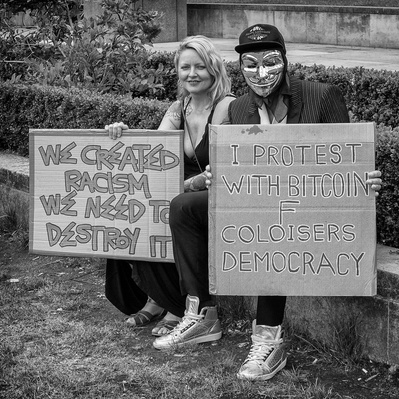 WE CREATED
RACISM
WE NEED TO
DESTROY IT
I PROTEST
WITH BITCOIN
F
COLOISERS
DEMOCRACY